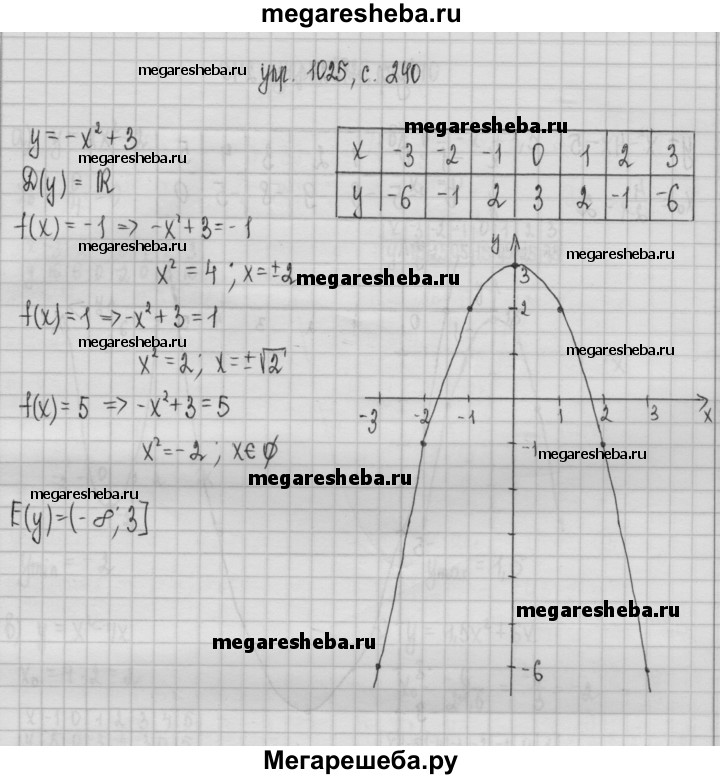 megaresheba.ru
megaresheba.ru упр. 1025, с. 240
y = -x² + 3
megaresheba.ru
D(y) = ℝ
f(x) = -1 => -x² + 3 = -1
megaresheba.ru
x² = 4 ; x = ±2
f(x) = 1 => -x² + 3 = 1
megaresheba.ru
x² = 2 ; x = ±√2
f(x) = 5 => -x² + 3 = 5
x² = -2 ; x ∈ ∅
megaresheba.ru
megaresheba.ru
E(y) = (-∞; 3]
megaresheba.ru
megaresheba.ru
x -3 -2 -1 0 1 2 3
y -6 -1 2 3 2 -1 -6
y
megaresheba.ru
3
megaresheba.ru
2
megaresheba.ru
-3 -2 -1 1 2 3 x
-1
megaresheba.ru
megaresheba.ru
-6
Мегарешеба.ру